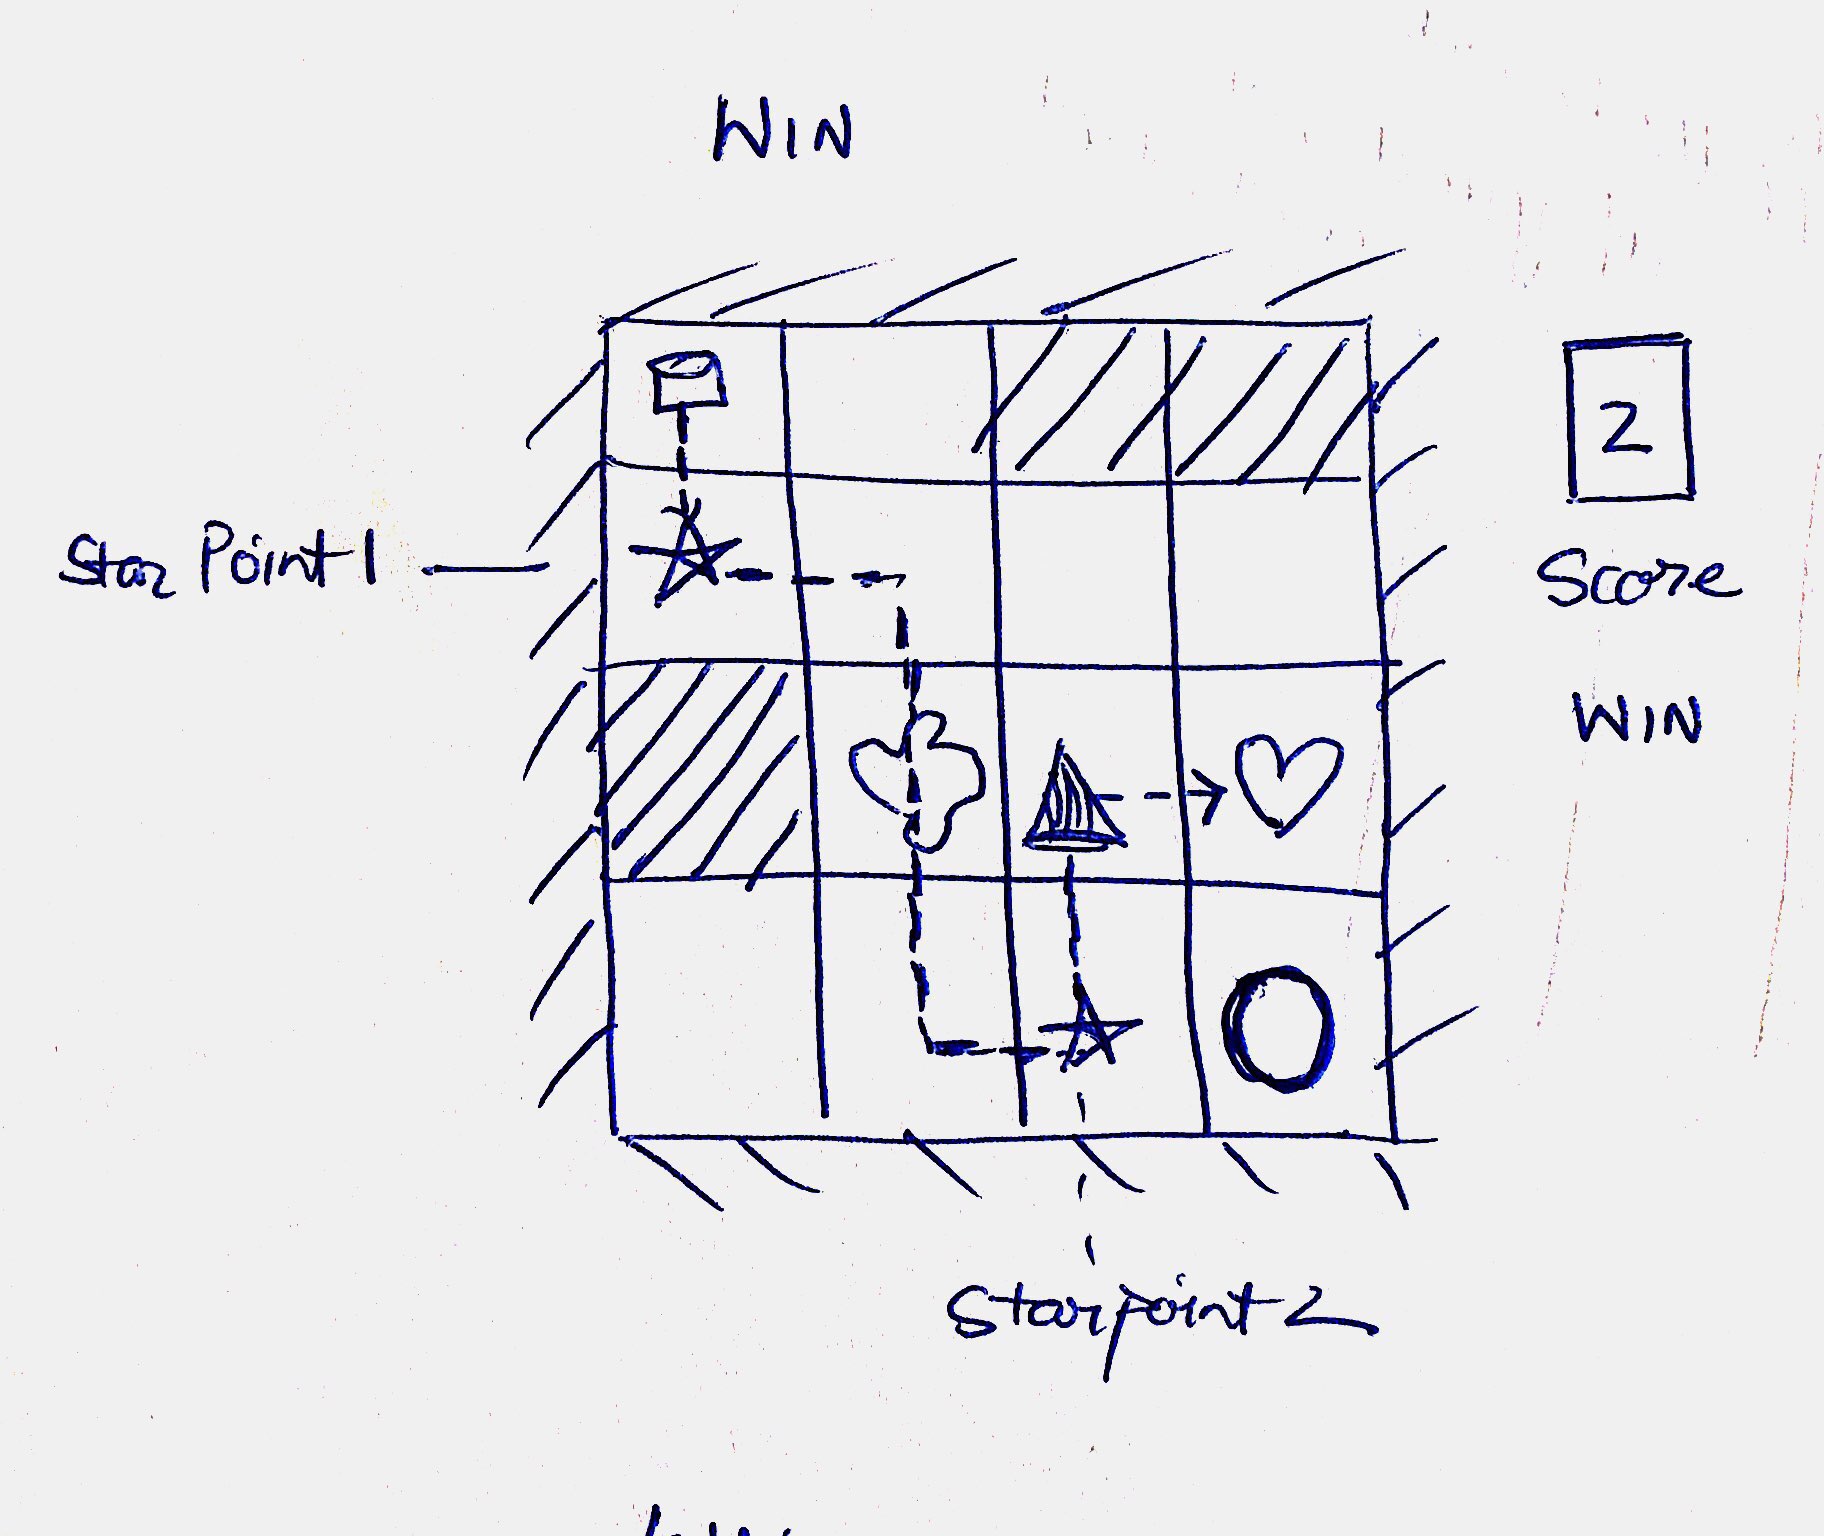 WIN
2
Star Point 1
Score
WIN
Starpoint 2